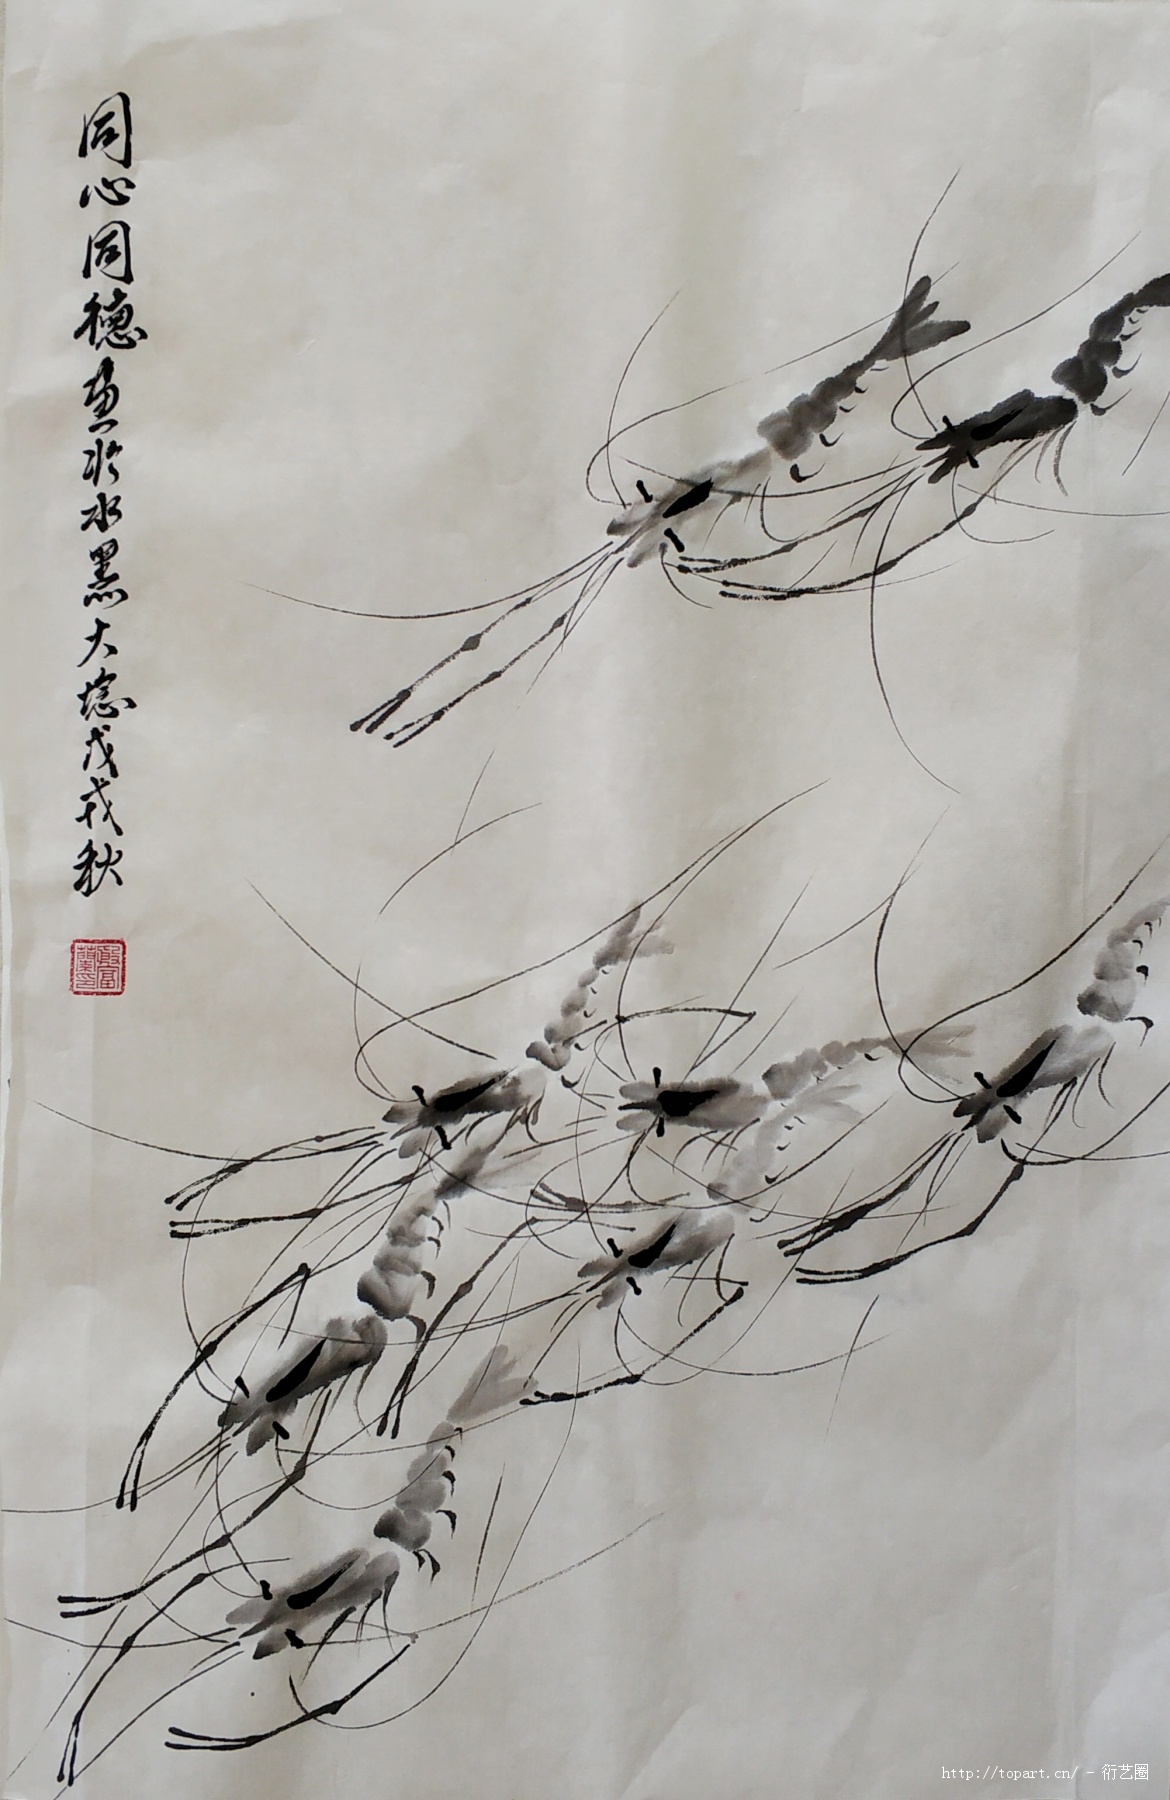 同心同德画於水黑大埝戊戌秋
http://topart.cn/ - 衍艺圈